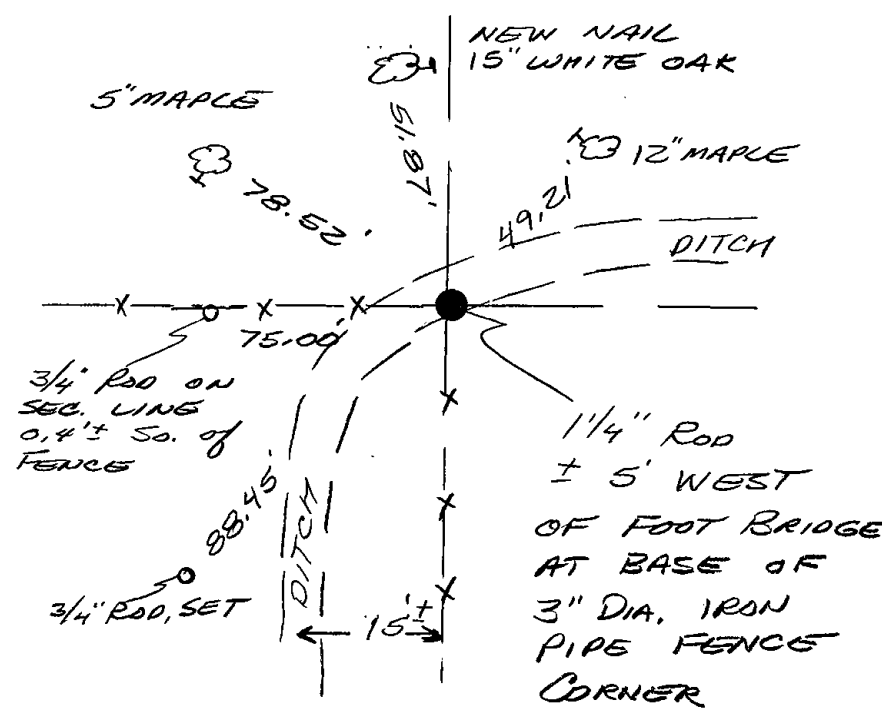 NEW NAIL
15" WHITE OAK
5" MAPLE
51.87'
12" MAPLE
78.52'
49.21'
DITCH
75.00'
3/4" ROD ON
SEC. LINE
0.4'± So. of
FENCE
1 1/4" ROD
± 5' WEST
OF FOOT BRIDGE
AT BASE OF
3" DIA. IRON
PIPE FENCE
CORNER
88.45'
DITCH
3/4" ROD, SET
15'±